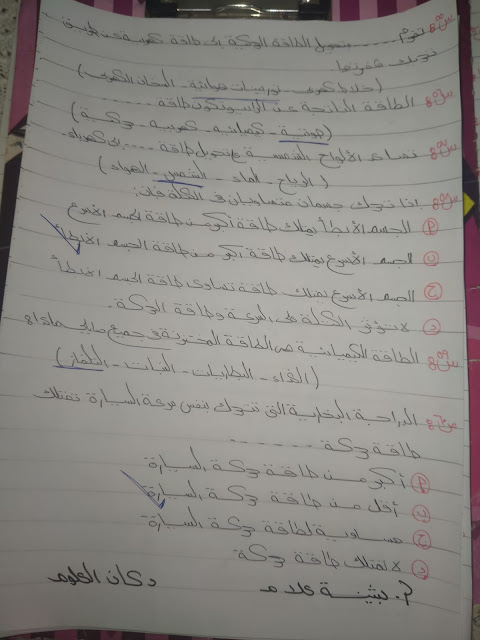 س٤/ تقوم ...... بتحويل الطاقة الحركية الى طاقة كهربائية عن طريق
تحريك شفراتها
(خلاط كهربائي - توربينات هوائية - السخان الكهربائي)
س٥/ الطاقة الناتجة عن الراديو تكون طاقة ......
(صوتية - كيميائية - كهربية - حركية)
س٦/ تساعد الألواح الشمسية في تحويل طاقة ..... الى كهرباء
(الرياح - الماء - الشمس - الهواء)
س٧/ اذا تحرك جسمان متساويان في الكتلة فان:
أ) الجسم الأبطأ يمتلك طاقة أكبر من طاقة الجسم الأسرع
ب) الجسم الأسرع يمتلك طاقة أكبر من طاقة الجسم الأبطأ
ج) الجسم الأسرع يمتلك طاقة تساوي طاقة الجسم الأبطأ
د) لا تؤثر الكتلة على السرعة وطاقة الحركة.
س٨/ الطاقة الكيميائية هي الطاقة المختزنة في جميع مايلي ماعدا
(الغذاء - البطاريات - النبات - التلفاز)
الدراجة البخارية التي تتحرك بنفس سرعة السيارة تمتلك
طاقة حركة ......
أ) أكبر من طاقة حركة السيارة
ب) أقل من طاقة حركة السيارة
ج) مساوية لطاقة حركة السيارة
د) لا تمتلك طاقة حركة
أ. بثينة علام دكان العلوم